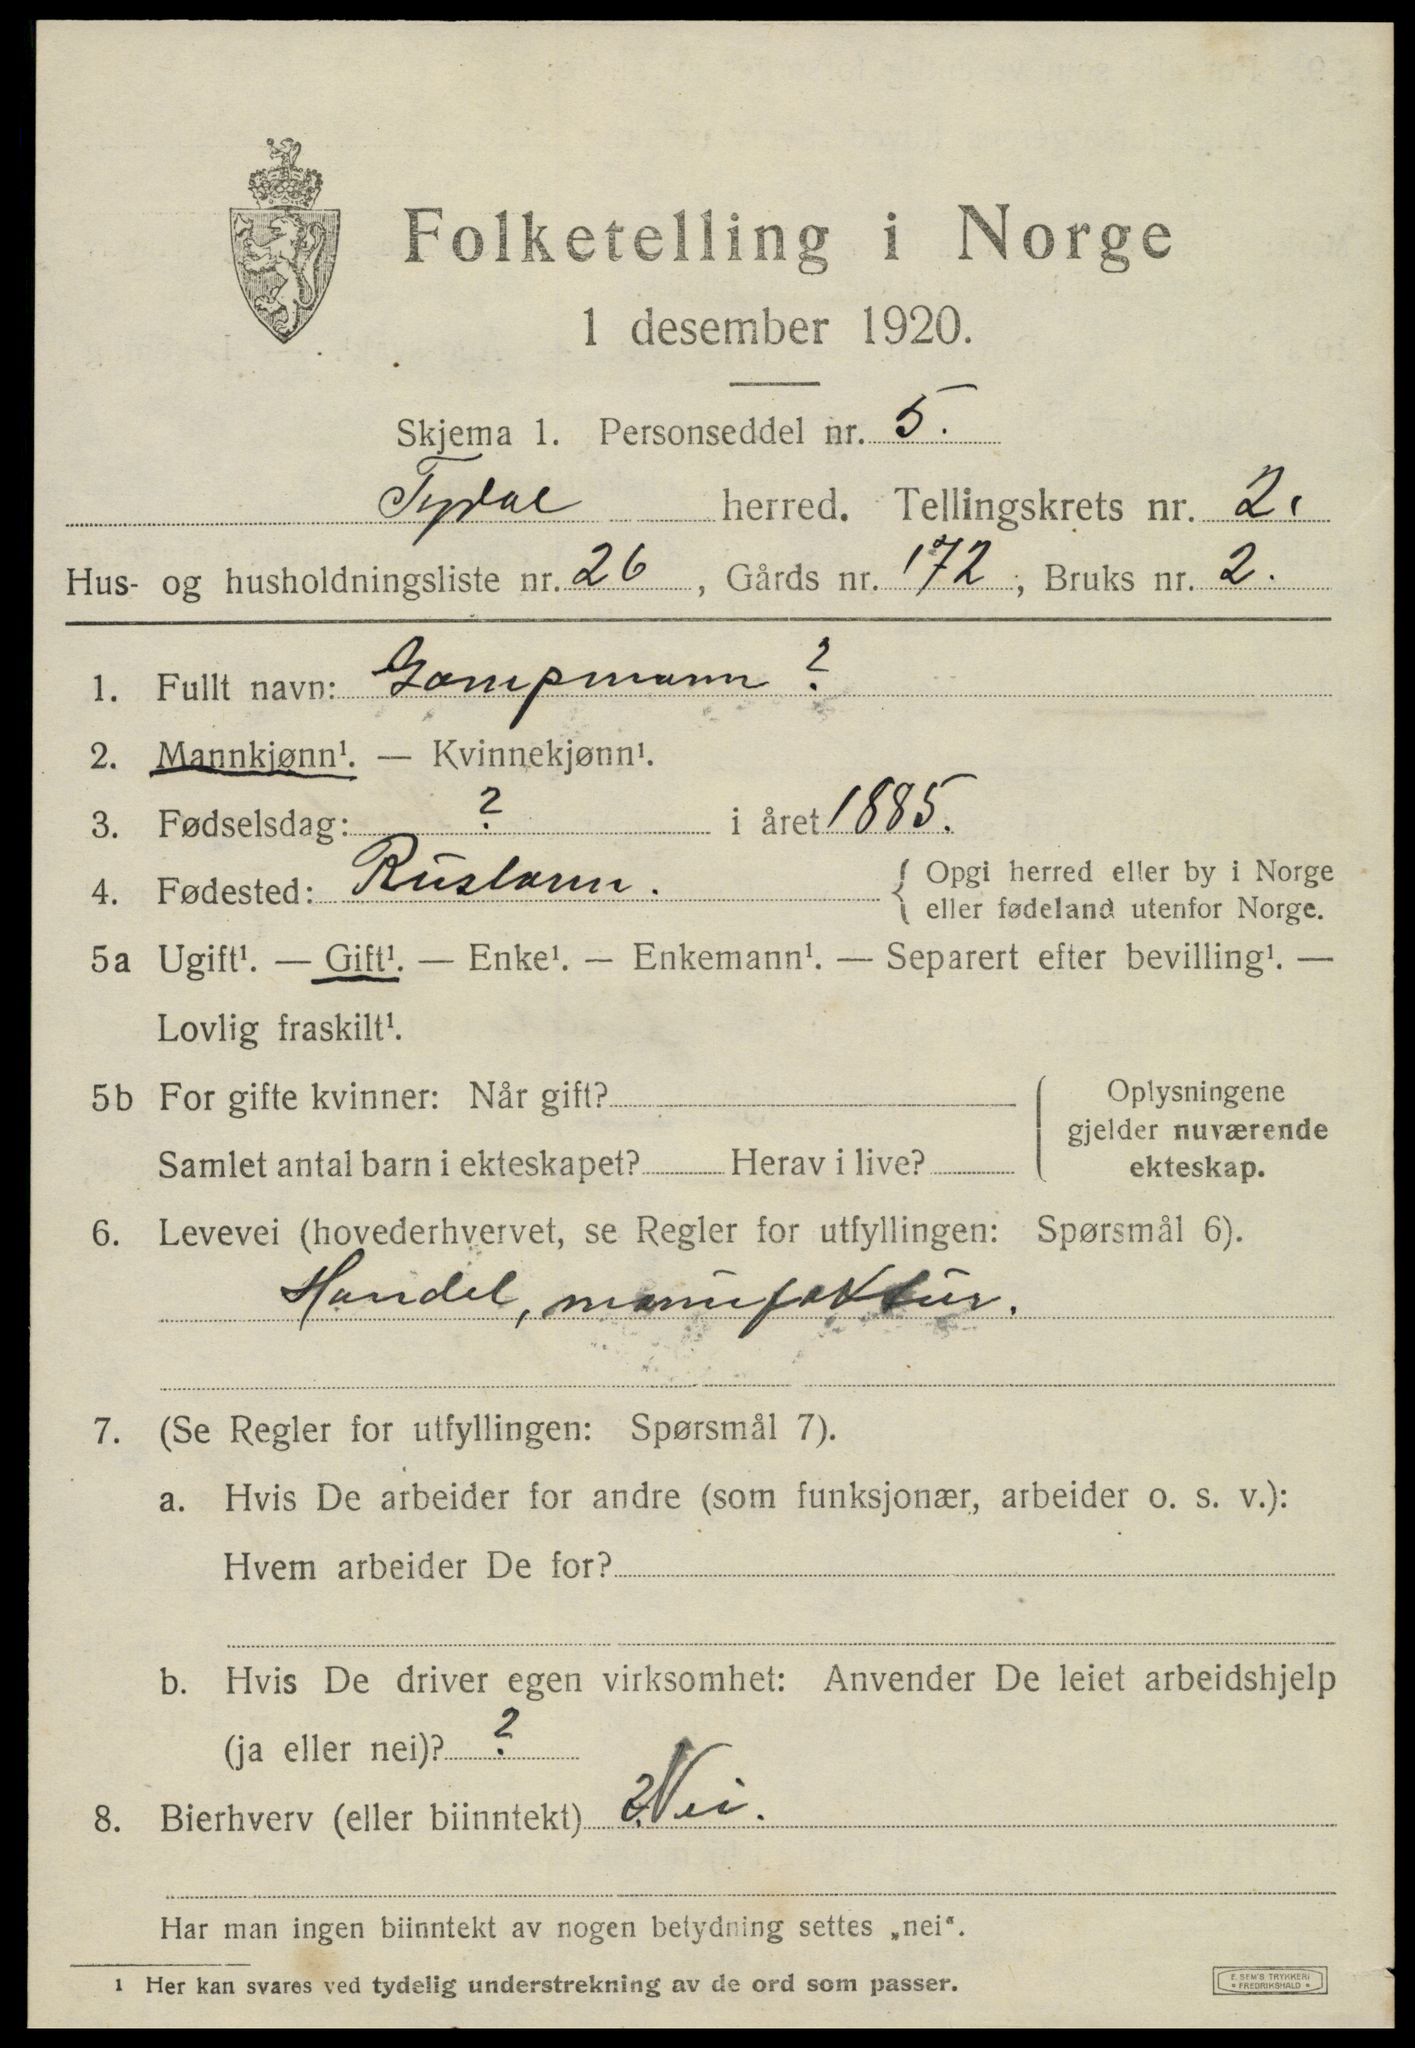 Folketelling i Norge
1 desember 1920.
Skjema 1. Personseddel nr. 5.
Tydal herred. Tellingskrets nr. 2.
Hus- og husholdningsliste nr. 26, Gårds nr. 172, Bruks nr. 2.
1. Fullt navn: Gampmann ?
2. Mannkjønn¹. — Kvinnekjønn¹.
3. Fødselsdag: ? i året 1885.
4. Fødested: Rusland. { Opgi herred eller by i Norge
eller fødeland utenfor Norge.
5a Ugift¹. — Gift¹. — Enke¹. — Enkemann¹. — Separert efter bevilling¹. —
Lovlig fraskilt¹.
5b For gifte kvinner: Når gift?
Samlet antal barn i ekteskapet? Herav i live?
Oplysningene
gjelder nuværende
ekteskap.
6. Levevei (hovederhvervet, se Regler for utfyllingen: Spørsmål 6).
Handel, manufaktur.
7. (Se Regler for utfyllingen: Spørsmål 7).
a. Hvis De arbeider for andre (som funksjonær, arbeider o. s. v.):
Hvem arbeider De for?
b. Hvis De driver egen virksomhet: Anvender De leiet arbeidshjelp
(ja eller nei)? ?
8. Bierhverv (eller biinntekt) ? Nei.
Har man ingen biinntekt av nogen betydning settes „nei“.
¹ Her kan svares ved tydelig understrekning av de ord som passer.
E. SEM'S TRYKKERI
• FREDRIKSHALD •